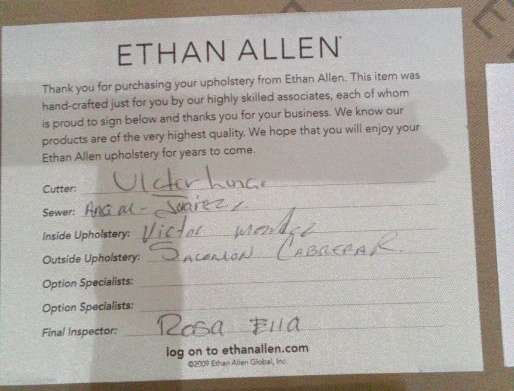 ETHAN ALLEN®
Thank you for purchasing your upholstery from Ethan Allen. This item was
hand-crafted just for you by our highly skilled associates, each of whom
is proud to sign below and thanks you for your business. We know our
products are of the very highest quality. We hope that you will enjoy your
Ethan Allen upholstery for years to come.
Cutter:
Sewer: Juarez
Inside Upholstery: Victor
Outside Upholstery:
Option Specialists:
Option Specialists:
Final Inspector: Rosa Ella
log on to ethanallen.com
©2009 Ethan Allen Global, Inc.